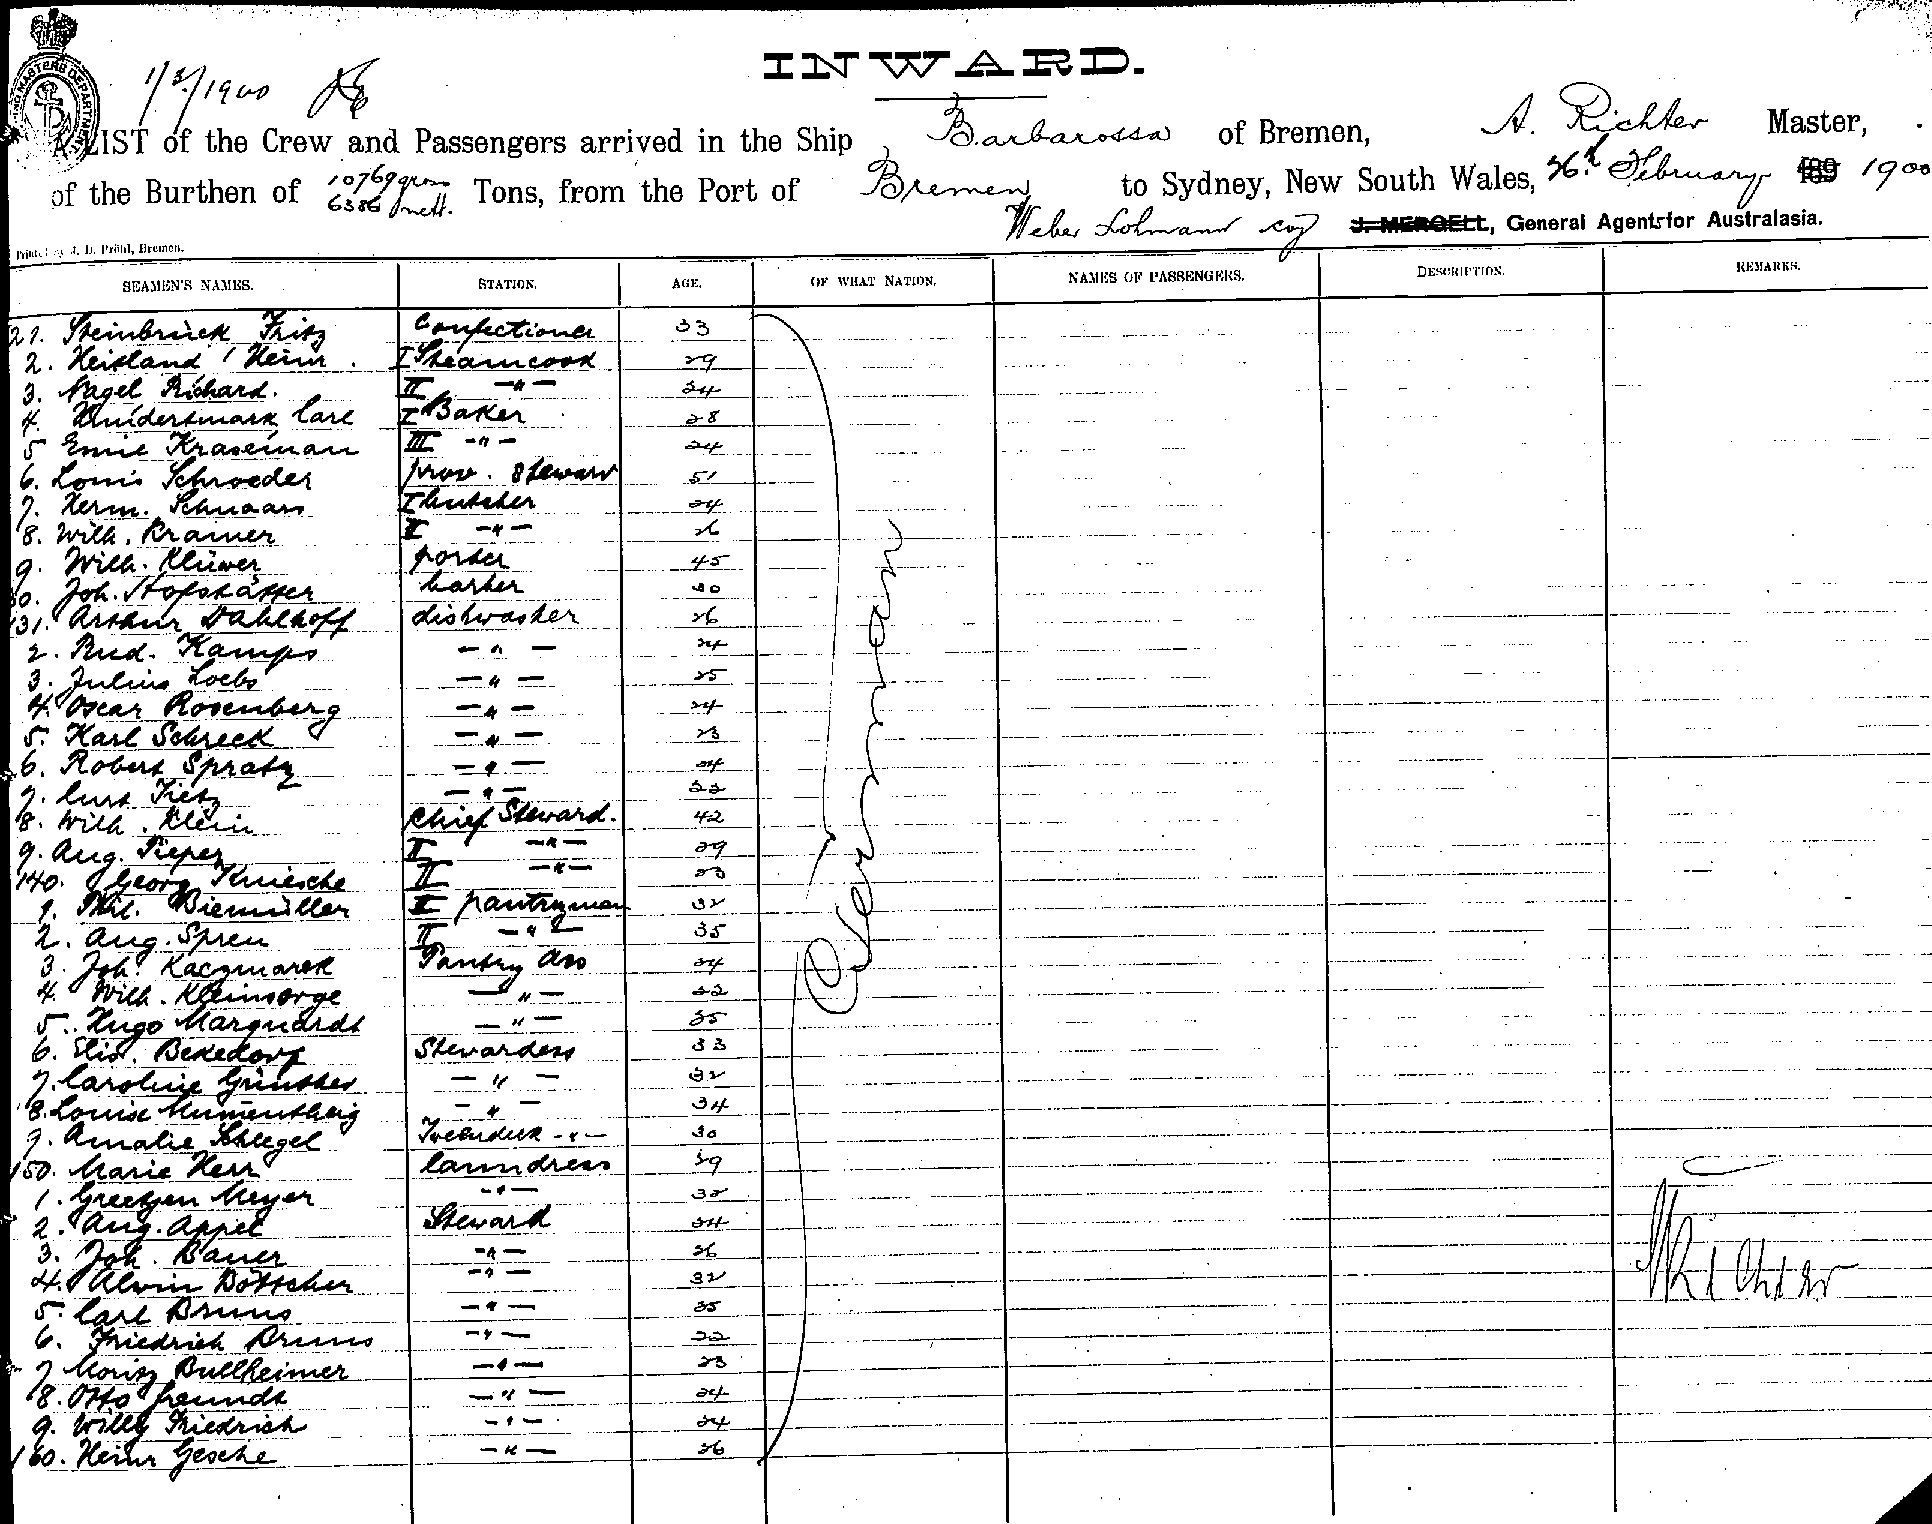 INWARD.
1/3/1900
A LIST of the Crew and Passengers arrived in the Ship Barbarossa of Bremen, A. Richter Master,
of the Burthen of 10769 gross 6386 nett. Tons, from the Port of Bremen to Sydney, New South Wales, 26th February 189 1900
Weber Lohmann Coy J. MERGELL, General Agents for Australasia.
Printed by J. D. Pröhl, Bremen.
SEAMEN'S NAMES. STATION. AGE. OF WHAT NATION. NAMES OF PASSENGERS. DESCRIPTION. REMARKS.
21. Steinbrück Fritz Confectioner 33
2. Heistand Heinr. I Steamcook 29
3. Nagel Richard. II -"- 24
4. Hundertmark Carl I Baker 28
5 Emil Kraseman III -"- 24
6. Louis Schroeder prov. Steward 51
7. Herm. Schnaars I butcher 24
8. Wilh. Kramer II -"- 26
9. Wilh. Klüwer porter 45
30. Joh. Hofstätter barber 30
131. Arthur Dahlhoff dishwasher 26
2. Rud. Kamps -"- 24
3. Julius Loebs -"- 25
4. Oscar Rosenberg -"- 24
5. Karl Schreck -"- 23
6. Robert Spratz -"- 24
7. Curt Tietz -"- 22
8. Wilh. Klein Chief Steward. 42
9. Aug. Pieper II -"- 29
140. Georg Kniesche II -"- 23
1. Phil. Biemüller I pantryman 32
2. Aug. Spreu II -"- 35
3. Joh. Kaczmarek Pantry Ass 24
4. Wilh. Kleinsorge -"- 22
5. Hugo Marquardt -"- 25
6. Elis. Bekedorf Stewardess 33
7. Caroline Günther -"- 32
8. Louise Mumentheig -"- 34
9. Amalie Schlegel -"- 30
150. Marie Herr laundress 29
1. Greetjen Meyer -"- 32
2. Aug. Appel Steward 24
3. Joh. Bauer -"- 26
4. Alwin Böttcher -"- 32
5. Carl Bruns -"- 25
6. Friedrich Bruns -"- 22
7 Moritz Bullheimer -"- 23
8. Otto Freundt -"- 24
9. Willy Friedrich -"- 24
160. Heinr Gesche -"- 26
German
A Richter